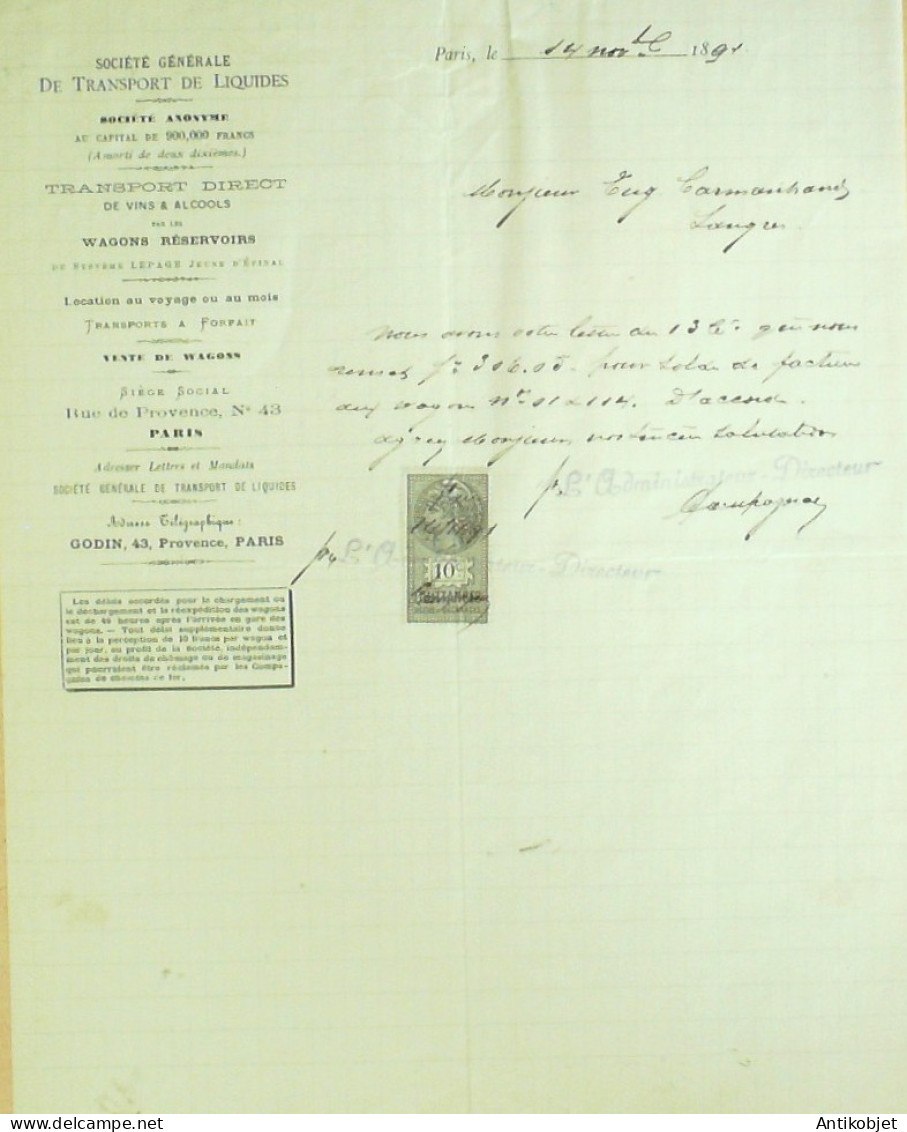 SOCIÉTÉ GÉNÉRALE
DE TRANSPORT DE LIQUIDES
SOCIÉTÉ ANONYME
AU CAPITAL DE 900,000 FRANCS
(Amorti de deux dixièmes.)
TRANSPORT DIRECT
DE VINS & ALCOOLS
PAR LES
WAGONS RÉSERVOIRS
DU SYSTÈME LEPAGE JEUNE D'ÉPINAL
Location au voyage ou au mois
TRANSPORTS A FORFAIT
VENTE DE WAGONS
SIÈGE SOCIAL
Rue de Provence, N° 43
PARIS
Adresser Lettres et Mandats
SOCIÉTÉ GÉNÉRALE DE TRANSPORT DE LIQUIDES
Adresse Télégraphique:
GODIN, 43, Provence, PARIS
Les délais accordés pour le chargement ou
le déchargement et la réexpédition des wagons
est de 48 heures après l'arrivée en gare des
wagons. — Tout délai supplémentaire donne
lieu à la perception de 10 francs par wagon et
par jour, au profit de la Société, indépendam-
ment des droits de chômage ou de magasinage
qui pourraient être réclamés par les Compa-
gnies de chemins de fer.
Paris, le 14 novbre 1891
Monsieur Eug
Langres
Nous avons votre lettre du 13 ct. qui nous
remet fr. 306.05. pour solde de facture
des wagons Nos 91 & 114. D'accord.
Agréez Monsieur, nos sincères salutations
pr L'Administrateur-Directeur
pr L'Administrateur-Directeur
10c
QUITTANCES
Antikobjet - delcampe.net